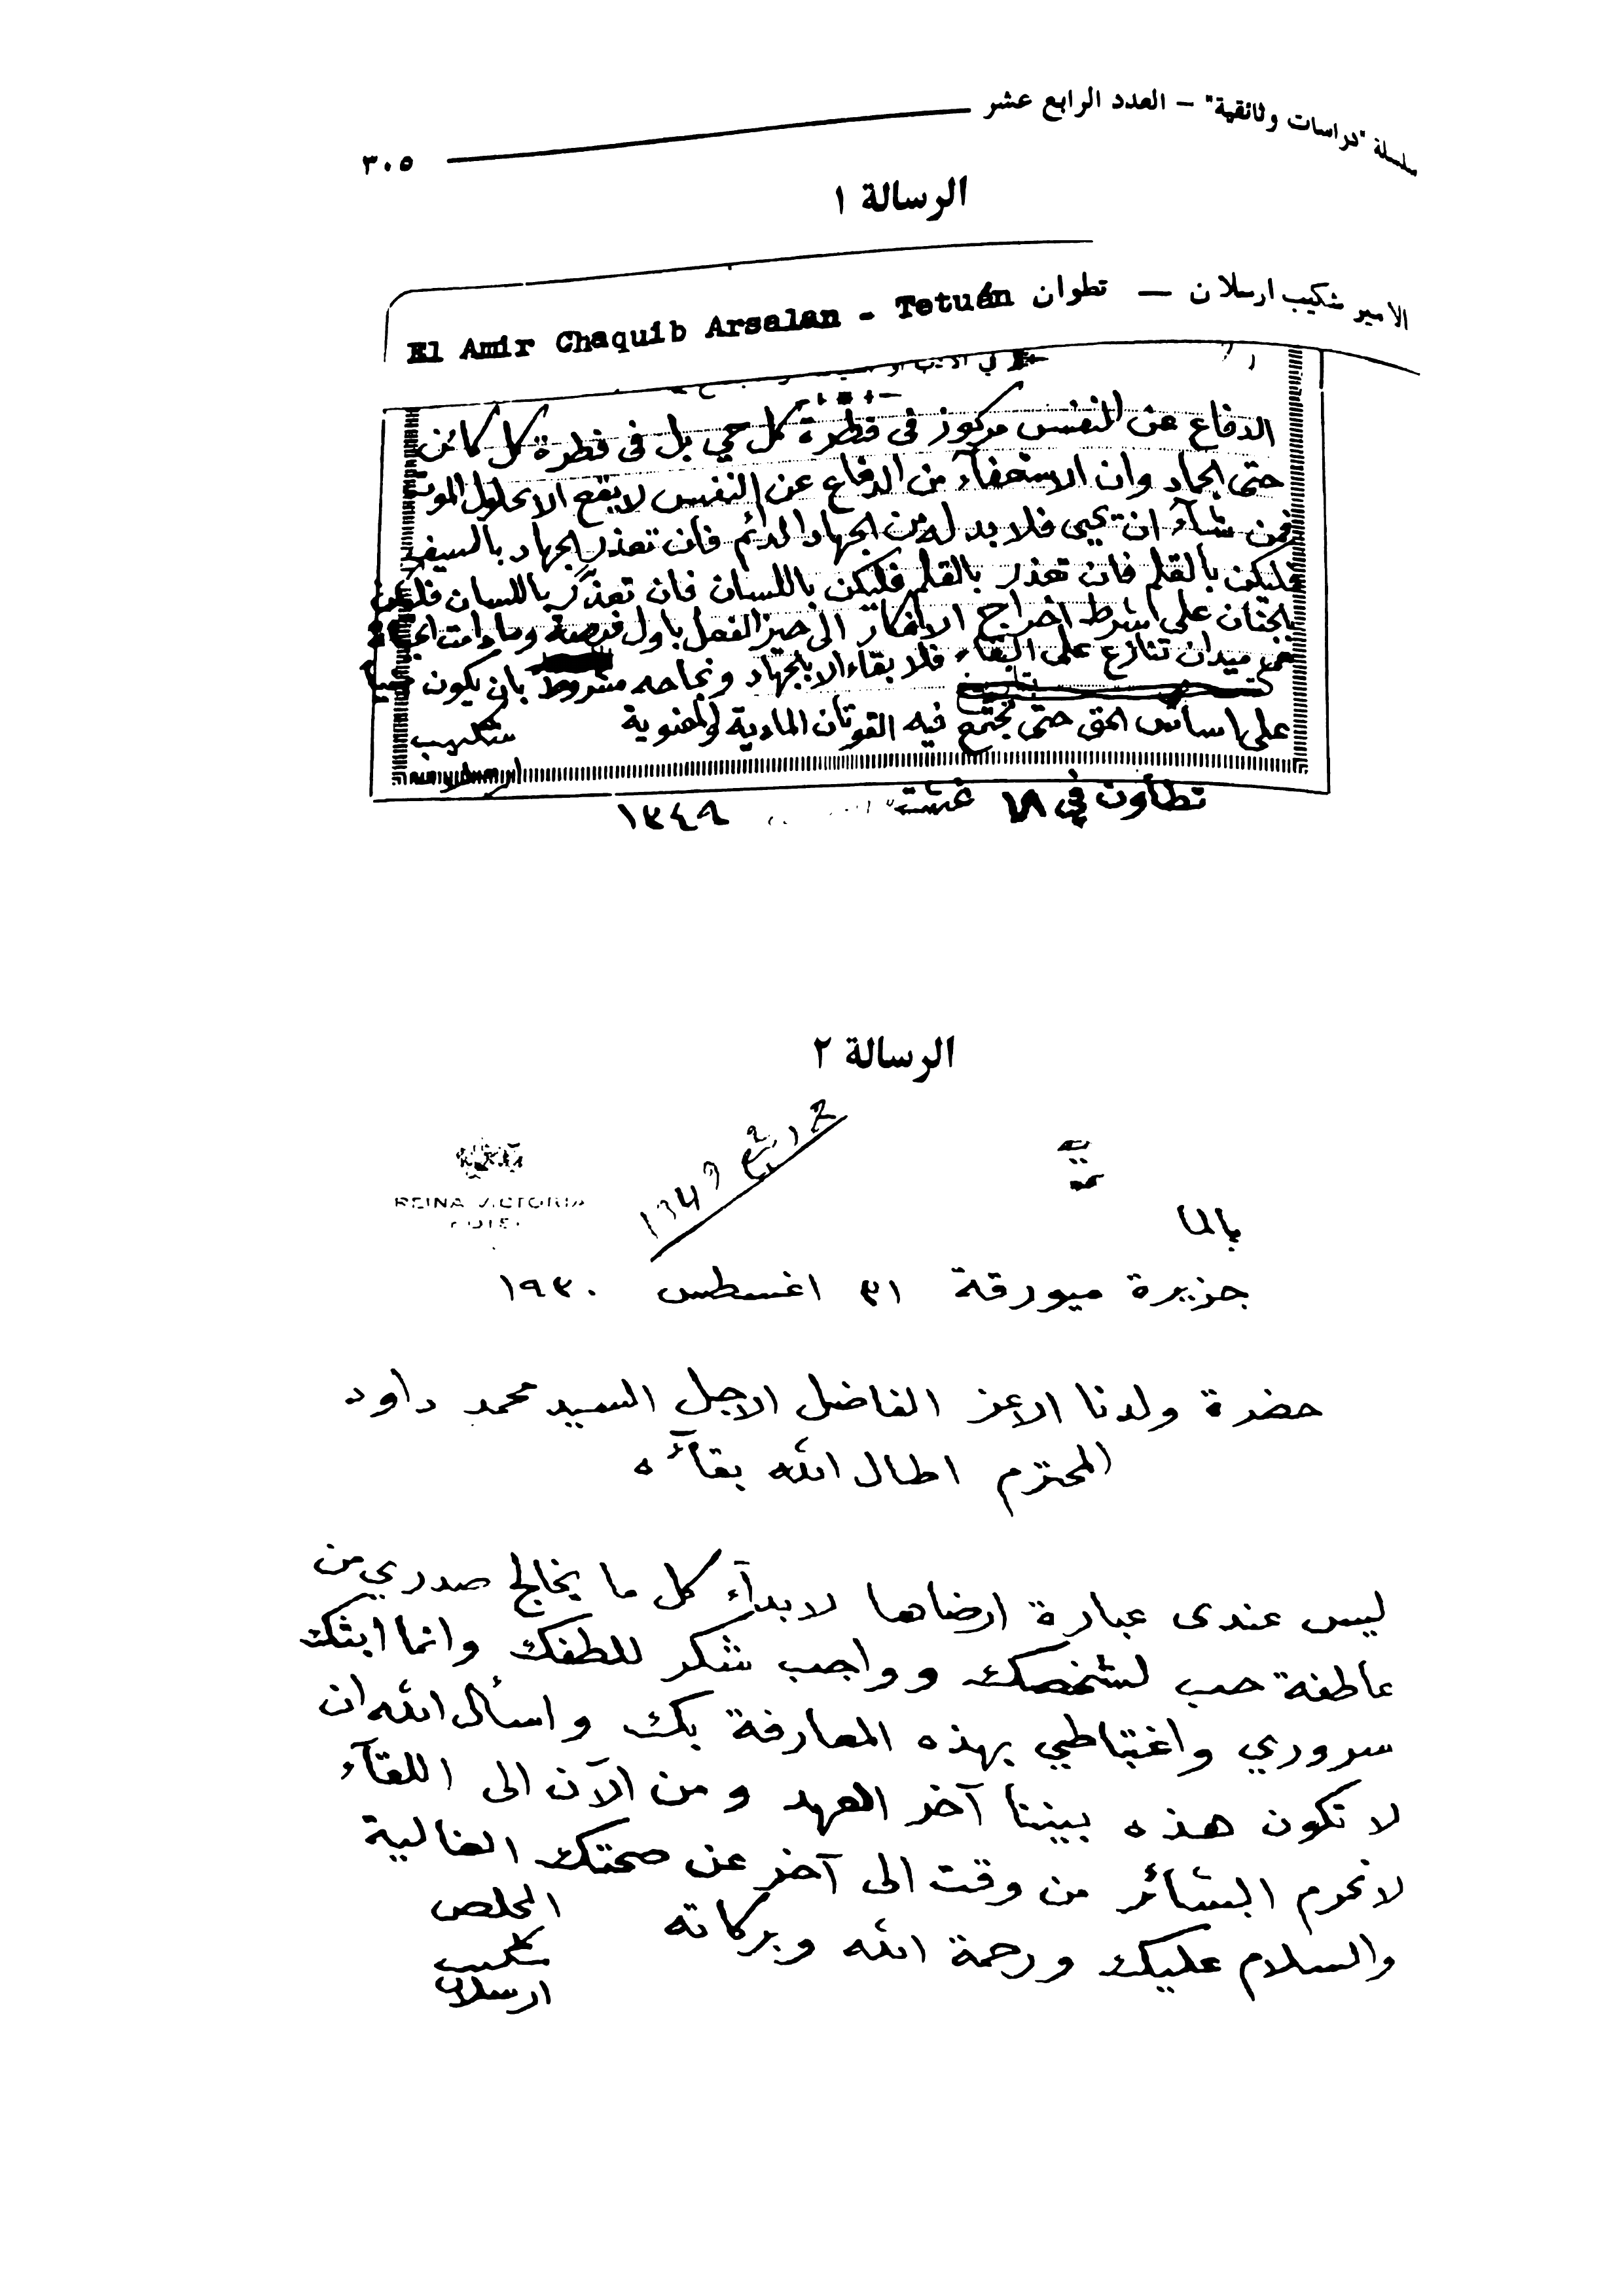 سلسلة "دراسات وثائقية" – العدد الرابع عشر
٣٠٥
الرسالة ١
الامير شكيب ارسلان — تطوان El Amir Chaquib Arsalan - Tetuán
الدفاع عن النفس مركوز فى فطرة كل حي بل فى فطرة كل كائن
حتى الجماد وان الاستعفآء من الدفاع عن النفس لا يقع الا بحلول الموت
فمن شآء ان يحيى فلا بد له من الجهاد الدائم فان تعذر الجهاد بالسيف
فليكن بالقلم فان تعذر بالقلم فليكن باللسان فان تعذر باللسان فليكن
بالجنان على شرط اخراج الافكار الى حيز الفعل باول فرصة وما دامت الحياة
هى ميدان تنازع على البقاء فلا بقاء الا بالجهاد ونجاحه مشروط بان يكون
على اساس الحق حتى تجتمع فيه القوتان المادية والمعنوية
شكيب
ارسلان
تطاون في ١٨ غشت ١٣٤٩
الرسالة ٢
REINA VICTORIA
HOTEL
ربيع 1349
بالما
جزيرة ميورقة ٣١ اغسطس ١٩٣٠
حضرة ولدنا الاعز الفاضل الاجل السيد محمد داود
المحترم اطال الله بقآءه
ليس عندى عبارة ارضاها لابدآء كل ما يخالج صدري من
عاطفة حب لشخصك وواجب شكر للطفك وانما ابثك
سروري واغتباطي بهذه المعارفة بك واسأل الله ان
لا تكون هذه بيننا آخر العهد ومن الآن الى اللقآء
لا نحرم البشائر من وقت الى آخر عن صحتك الغالية
والسلام عليك ورحمة الله وبركاته
المخلص
شكيب
ارسلان